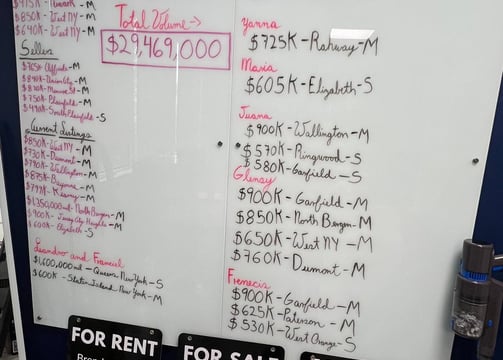 $475K - Newark - M
$850K - West NY - M
$640K - West NY - M
Sellers
$765K - Cliffside - M
$840K - Union City - M
$750K - Plainfield - M
$490K - South Plainfield - S
Current Listings
$850K - West NY - M
$730K - Dumont - M
$790K - Wallington - M
$875K - Bayonne - M
$799K - Kearny - M
$1,350,000mil - North Bergen - M
$900K - Jersey City Heights - M
$600K - Elizabeth - S
Leandro and Franciel
$1,600,000mil - Queens New York - S
$600K - Staten Island New York - M
Total Volume →
$29,469,000
Yanna
$725K - Rahway - M
Maria
$605K - Elizabeth - S
Juana
$900K - Wallington - M
$570K - Ringwood - S
$580K - Garfield - S
Glenny
$900K - Garfield - M
$850K - North Bergen - M
$650K - West NY - M
$760K - Dumont - M
Firenecis
$900K - Garfield - M
$625K - Paterson - M
$530K - West Orange - S
FOR RENT
FOR SALE